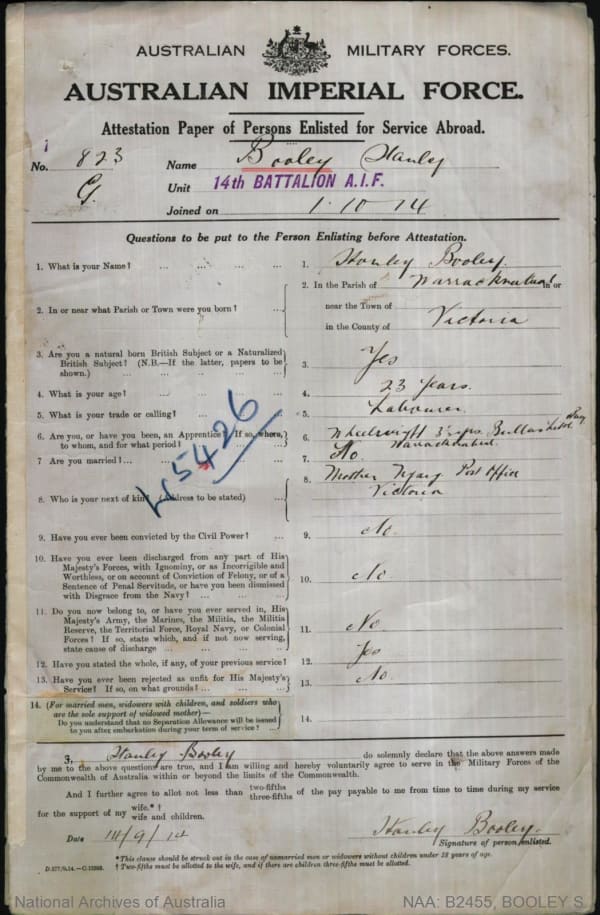 AUSTRALIAN MILITARY FORCES.
AUSTRALIAN IMPERIAL FORCE.
Attestation Paper of Persons Enlisted for Service Abroad.
No. 823 Name Booley Stanley
G. Unit 14th BATTALION A.I.F.
Joined on 1.10.14
Questions to be put to the Person Enlisting before Attestation.
1. What is your Name? ... ... ... ... 1. Stanley Booley.
2. In or near what Parish or Town were you born? ... 2. In the Parish of Warracknabeal in or
near the Town of
in the County of Victoria
3. Are you a natural born British Subject or a Naturalized
British Subject? (N.B.—If the latter, papers to be
shown.) ... ... ... ... 3. Yes
4. What is your age? ... ... ... ... 4. 23 Years.
5. What is your trade or calling? ... ... ... 5. Labourer.
6. Are you, or have you been, an Apprentice? If so, where,
to whom, and for what period? 6. Wheelwright 3 yrs.
Warracknabeal.
7 Are you married? ... ... 7. No
8. Who is your next of kin? (Address to be stated) ... 8. Mother Nyang Post Office
Victoria
45426
9. Have you ever been convicted by the Civil Power? ... 9. No.
10. Have you ever been discharged from any part of His
Majesty's Forces, with Ignominy, or as Incorrigible and
Worthless, or on account of Conviction of Felony, or of a
Sentence of Penal Servitude, or have you been dismissed
with Disgrace from the Navy? ... ... 10. No
11. Do you now belong to, or have you ever served in, His
Majesty's Army, the Marines, the Militia, the Militia
Reserve, the Territorial Force, Royal Navy, or Colonial
Forces? If so, state which, and if not now serving,
state cause of discharge ... ... ... 11. No.
12. Have you stated the whole, if any, of your previous service? 12. Yes
13. Have you ever been rejected as unfit for His Majesty's
Service? If so, on what grounds? ... ... ... 13. No.
14. (For married men, widowers with children, and soldiers who
are the sole support of widowed mother)—
Do you understand that no Separation Allowance will be issued
to you after embarkation during your term of service? ... 14.
I, Stanley Booley do solemnly declare that the above answers made
by me to the above questions are true, and I am willing and hereby voluntarily agree to serve in the Military Forces of the
Commonwealth of Australia within or beyond the limits of the Commonwealth.
And I further agree to allot not less than two-fifths three-fifths of the pay payable to me from time to time during my service
for the support of my wife.*† wife and children.
Date 14/9/14 Stanley Booley.
Signature of person enlisted.
*This clause should be struck out in the case of unmarried men or widowers without children under 18 years of age.
D.277/9.14.—C.12393. † Two-fifths must be allotted to the wife, and if there are children three-fifths must be allotted.
National Archives of Australia NAA: B2455, BOOLEY S